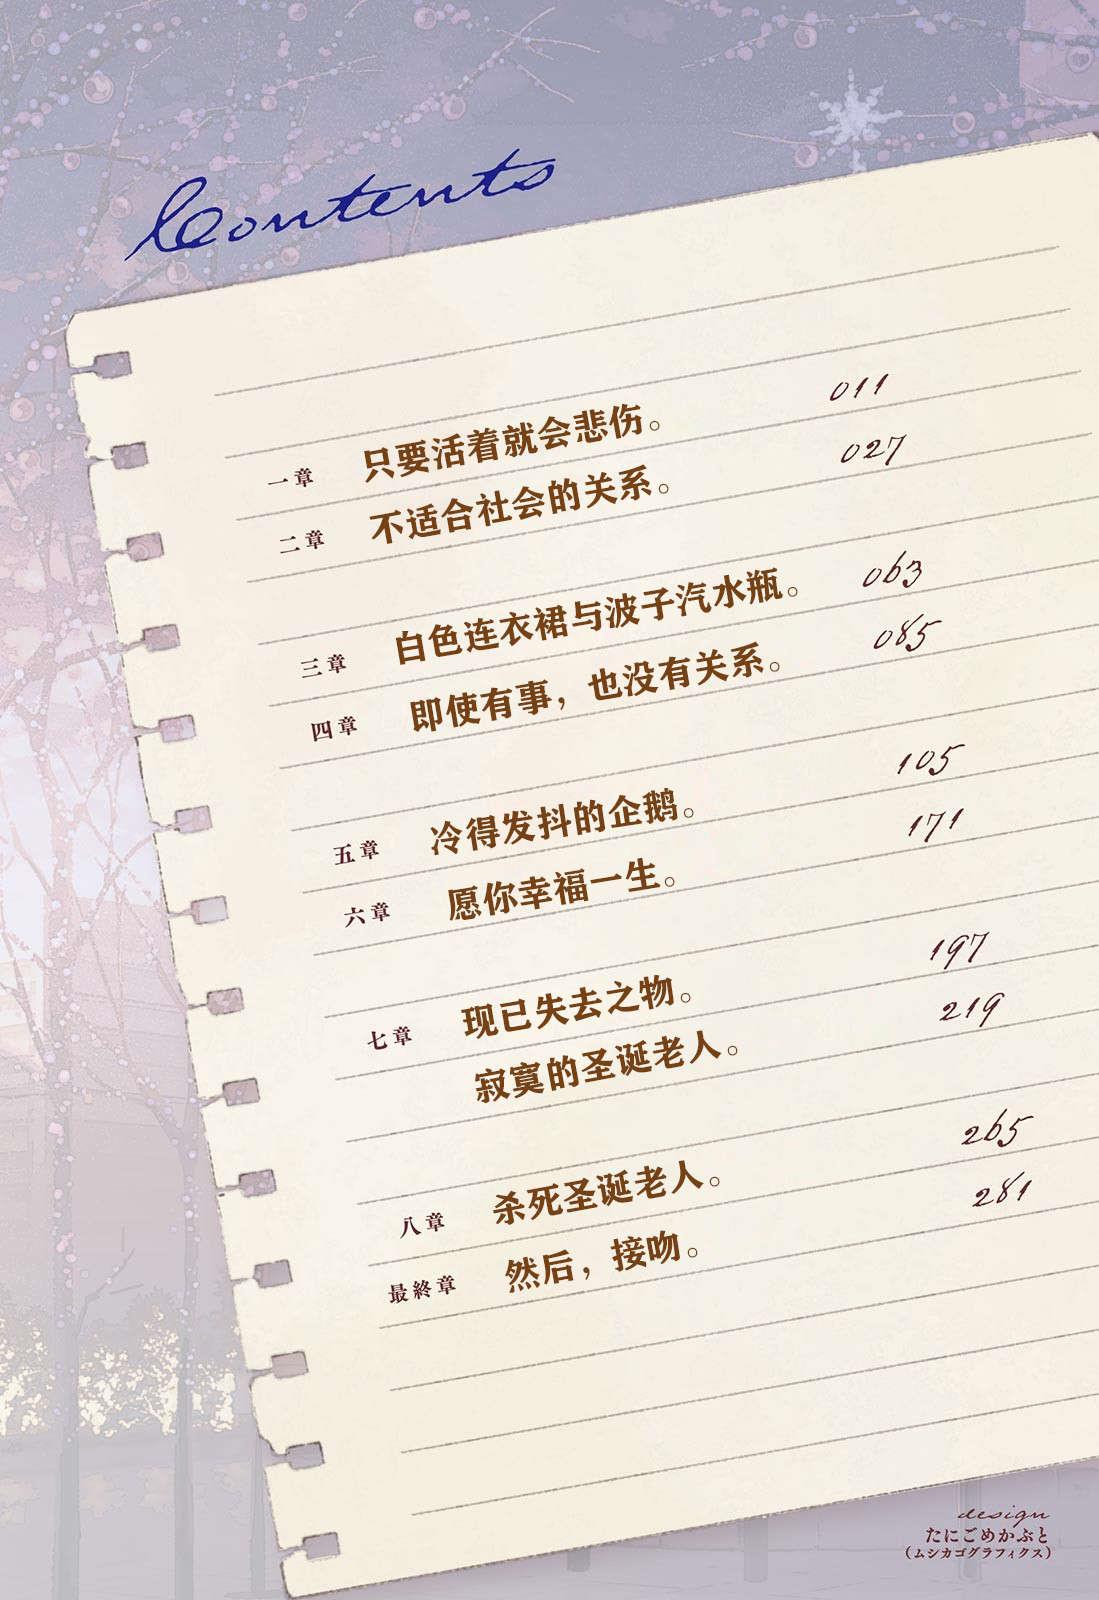 Contents
一章 只要活着就会悲伤。 011
二章 不适合社会的关系。 027
三章 白色连衣裙与波子汽水瓶。 063
四章 即使有事，也没有关系。 085
五章 冷得发抖的企鹅。 105
六章 愿你幸福一生。 171
七章 现已失去之物。 197
寂寞的圣诞老人。 219
八章 杀死圣诞老人。 265
最終章 然后，接吻。 281
design
たにごめかぶと
（ムシカゴグラフィクス）